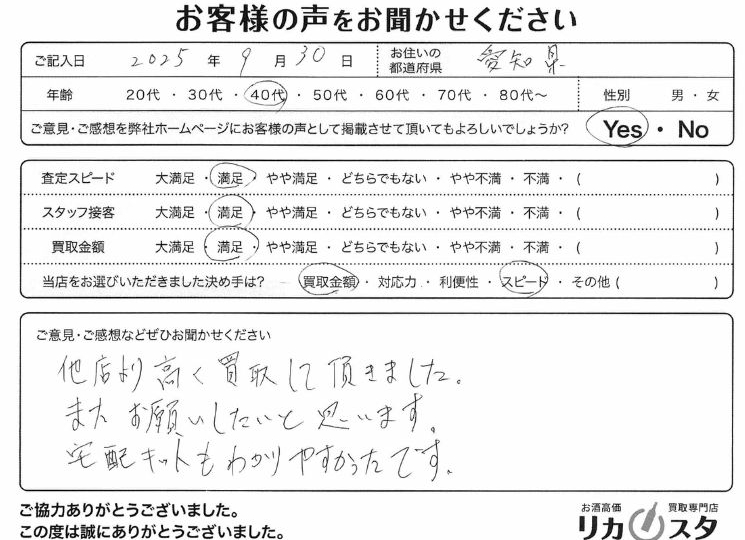 お客様の声をお聞かせください
ご記入日 2025 年 9 月 30 日 お住いの都道府県 愛知県
年齢 20代 ・ 30代 ・ 40代 ・ 50代 ・ 60代 ・ 70代 ・ 80代～ 性別 男 ・ 女
ご意見・ご感想を弊社ホームページにお客様の声として掲載させて頂いてもよろしいでしょうか？ Yes ・ No
査定スピード 大満足 ・ 満足 ・ やや満足 ・ どちらでもない ・ やや不満 ・ 不満 ・ ( )
スタッフ接客 大満足 ・ 満足 ・ やや満足 ・ どちらでもない ・ やや不満 ・ 不満 ・ ( )
買取金額 大満足 ・ 満足 ・ やや満足 ・ どちらでもない ・ やや不満 ・ 不満 ・ ( )
当店をお選びいただきました決め手は？ 買取金額 ・ 対応力 ・ 利便性 ・ スピード ・ その他 ( )
ご意見・ご感想などぜひお聞かせください
他店より高く買取して頂きました。
またお願いしたいと思います。
宅配キットもわかりやすかったです。
ご協力ありがとうございました。
この度は誠にありがとうございました。
お酒高価 買取専門店
リカスタ